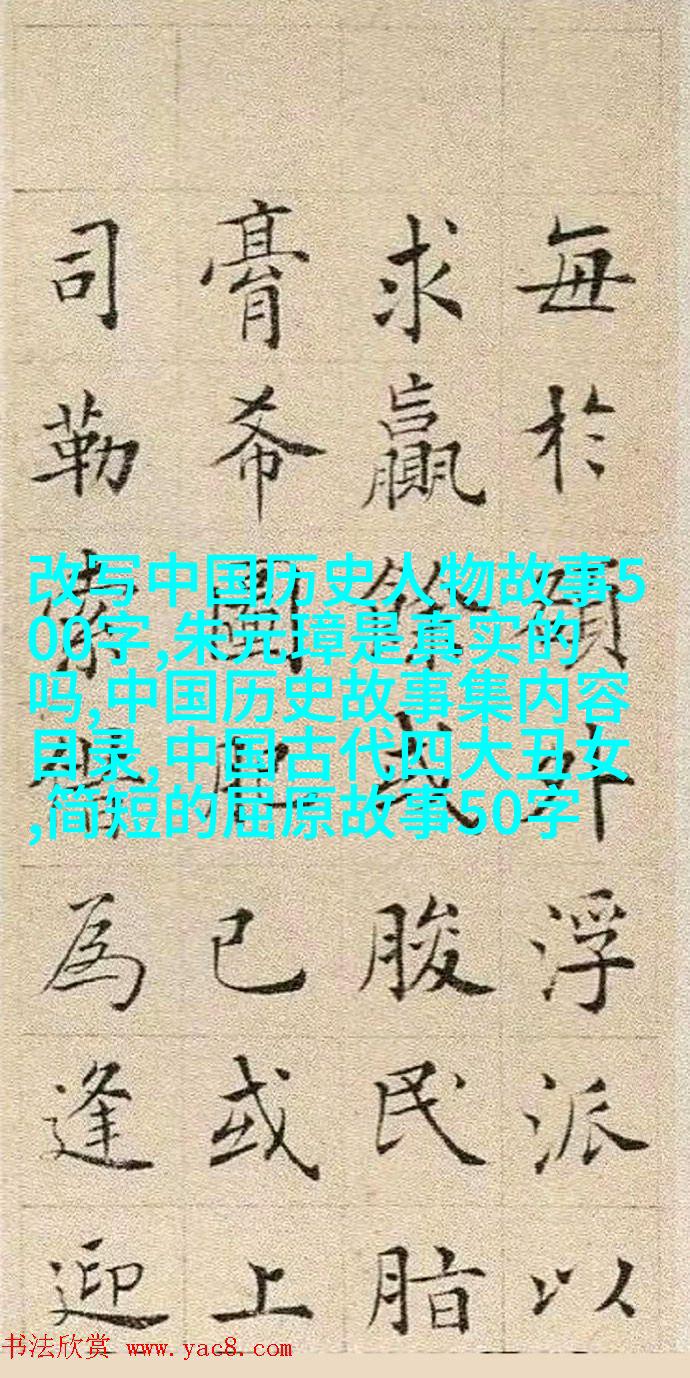 每於額外浮派以
求贏餘或朘民脂
膏希圖肥已或上
司勒索為逢迎
改写中国历史人物故事5
00字,朱元璋是真实的
吗,中国历史故事集内容
目录,中国古代四大丑女
,简短的屈原故事50字
书法欣赏 www.yac8.com